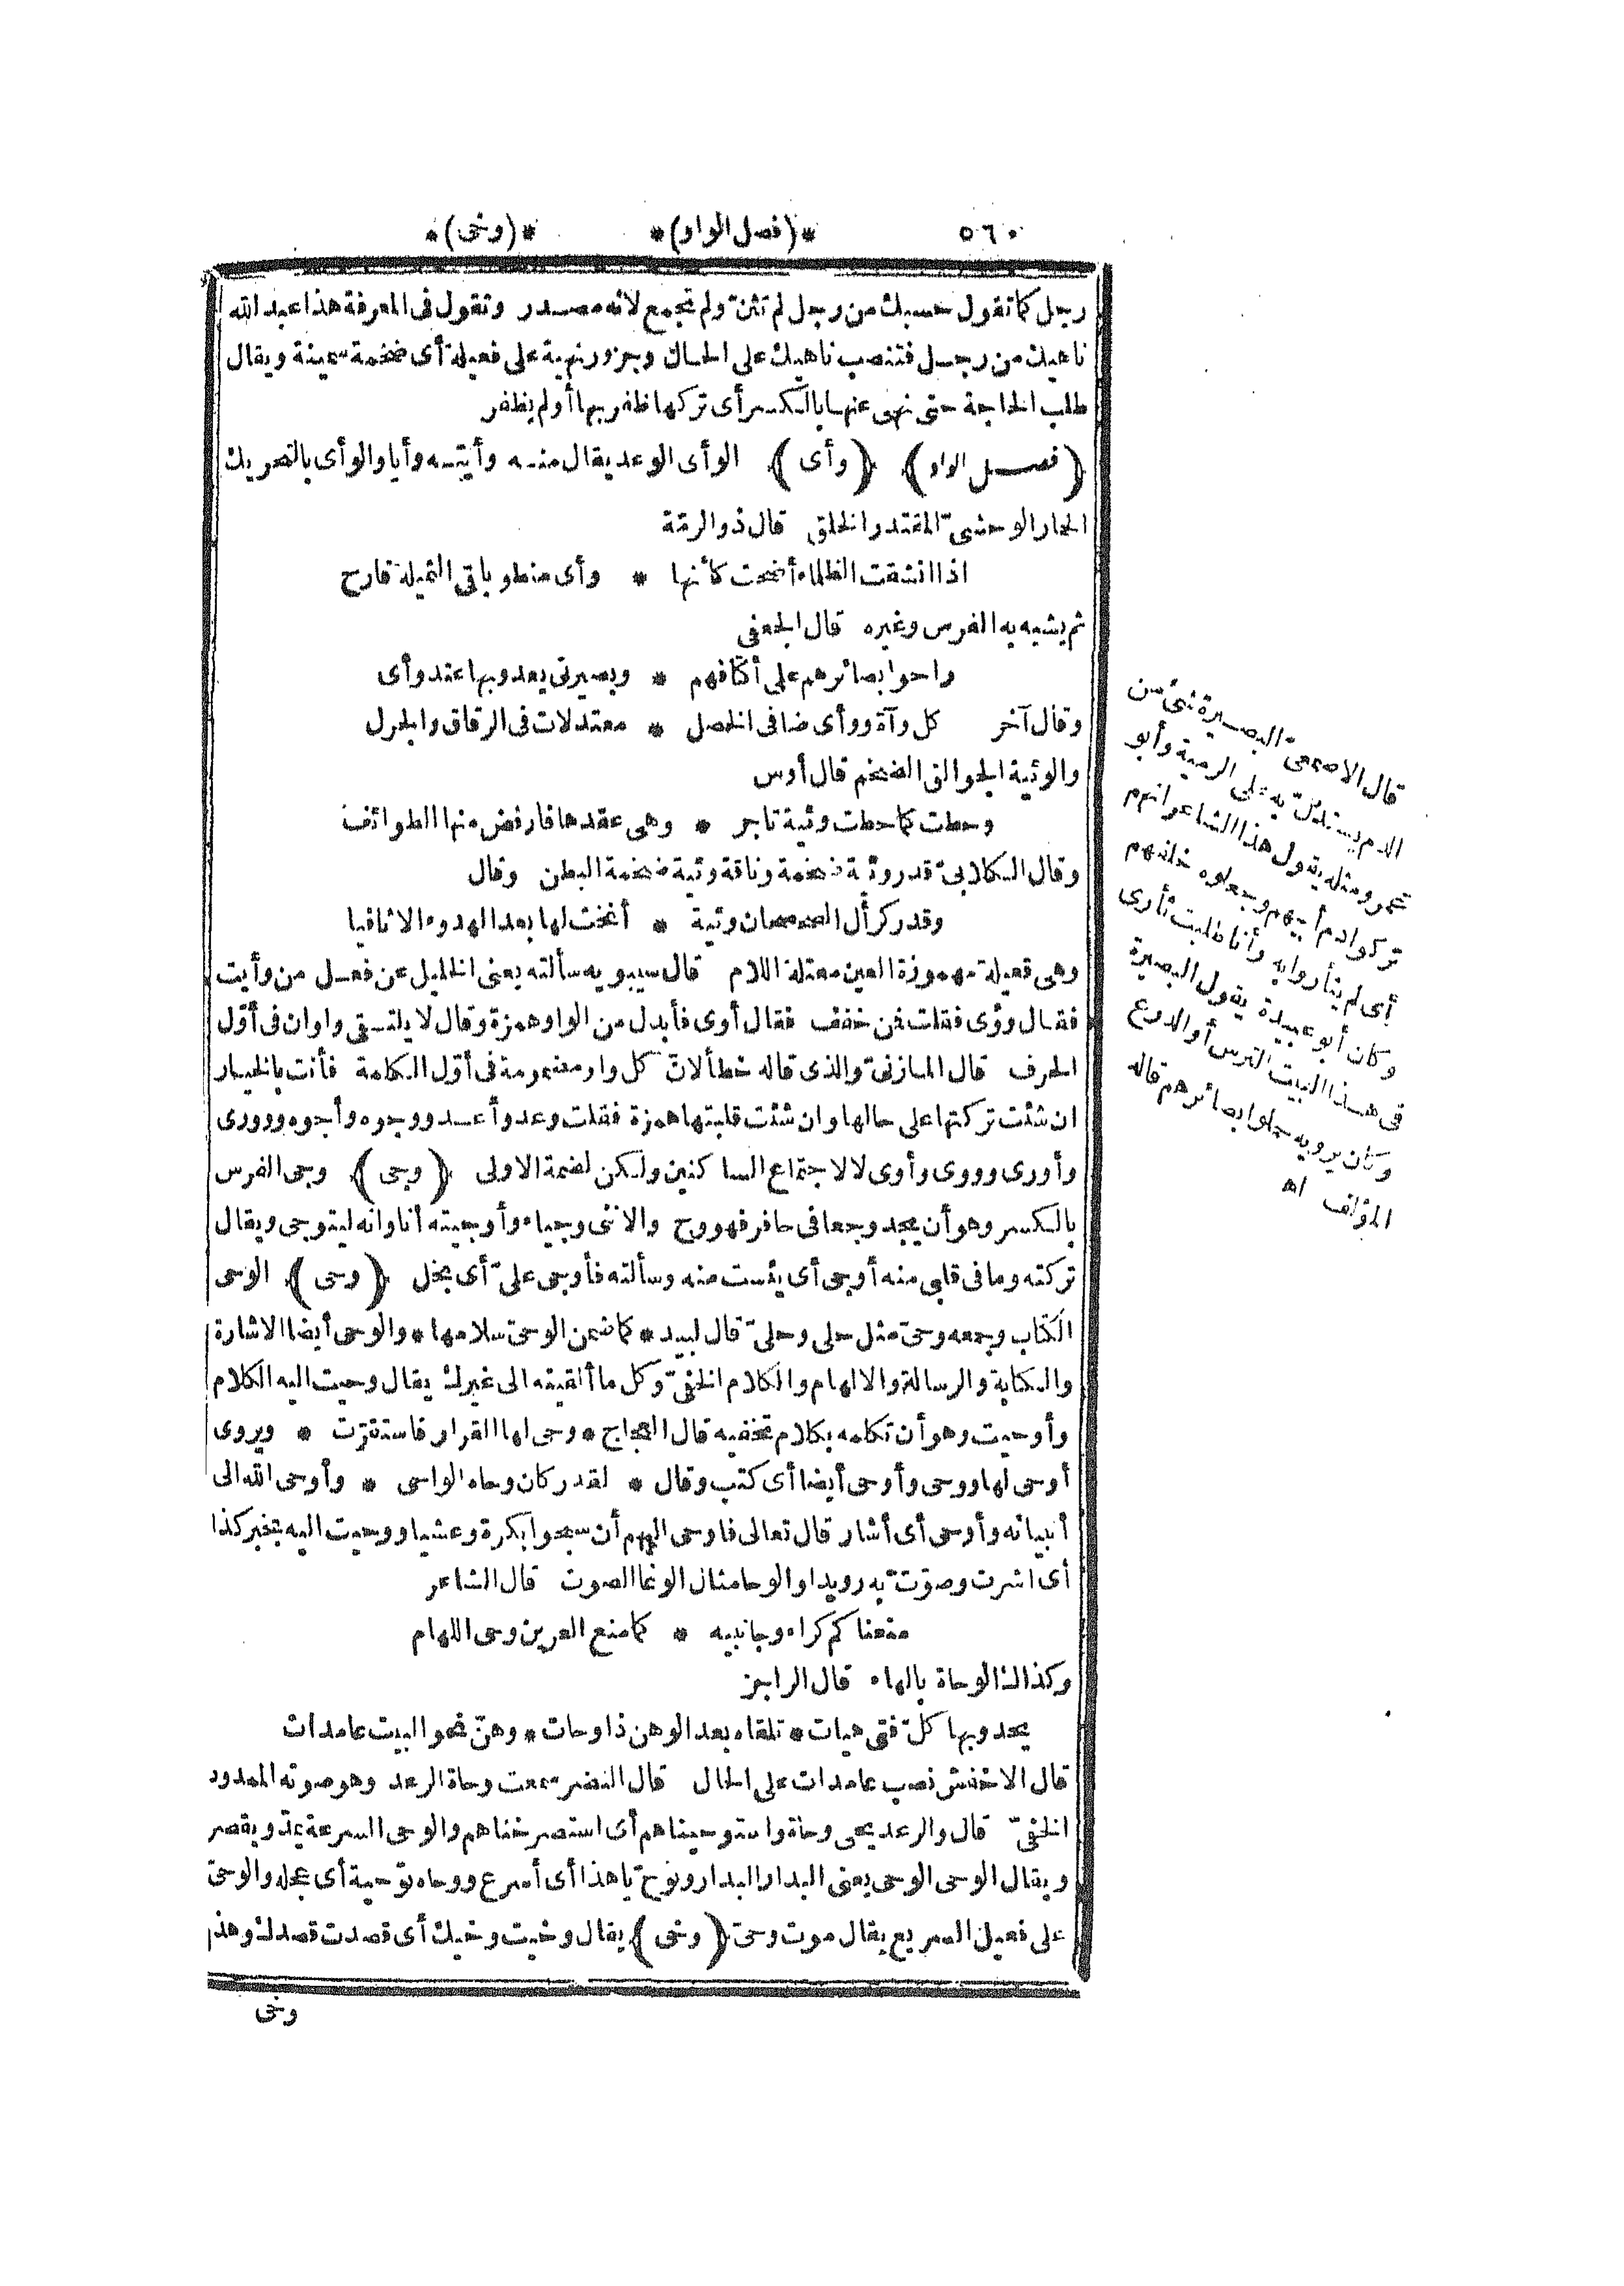 ٥٦٠ *(فصل الواو)* *(وخى)*
رجل كما تقول حسبك من رجل لم تثنّ ولم تجمع لانه مصدر وتقول فى المعرفة هذا عبد الله
ناهيك من رجل فتنصب ناهيك على الحال وجزور نهية على فعيلة أى ضخمة سمينة ويقال
طلب الحاجة حتى نهى عنها بالكسر أى تركها ظفر بها أو لم يظفر
(فصل الواو) (وأى) الوأى الوعد يقال منه وأيته وأيا والوأى بالتحريك
الحمار الوحشىّ المقتدر الخلق قال ذو الرمّة
اذا انشقت الظلماء أضحت كأنها * وأى منطو باقى الثميلة قارح
ثم يشبه به الفرس وغيره قال الجعفى
راحوا بصائرهم على أكتافهم * وبصيرتى يعدو بها عتد وأى
وقال آخر كل وآة ووأى ضافى الخصل * معتدلات فى الرقاق والجرل
والوئية الجوالق الضخم قال أوس
وحطت كما حطت وئية تاجر * وهى عقدها فارفض منها الطوائف
وقال الكلابىّ قدر وئية ضخمة وناقة وئية ضخمة البطن وقال
وقدر كرأل الصحصحان وئية * أنخت لها بعد الهدوء الاثافيا
وهى فعيلة مهموزة العين معتلة اللام قال سيبويه سألته يعنى الخليل عن فعل من وأيت
فقال وؤى فقلت فمن خفف فقال أوى فأبدل من الواو همزة وقال لا يلتقى واوان فى أوّل
الحرف قال المازنىّ والذى قاله خطأ لانّ كل واو مضمومة فى أوّل الكلمة فأنت بالخيار
ان شئت تركتها على حالها وان شئت قلبتها همزة فقلت وعد وأعد ووجوه وأجوه وورى
وأورى وووى وأوى لا لاجتماع الساكنين ولكن لضمة الاولى (وجى) وجى الفرس
بالكسر وهو أن يجد وجعا فى حافر فهو وج والانثى وجياء وأوجيته أنا وانه ليتوجى ويقال
تركته وما فى قلبى منه أوجى أى يئست منه وسألته فأوجى علىّ أى بخل (وحى) الوحى
الكتاب وجمعه وحىّ مثل حلى وحلىّ قال لبيد * كما ضمن الوحىّ سلامها * والوحى أيضا الاشارة
والكتابة والرسالة والالهام والكلام الخفىّ وكل ما ألقيته الى غيرك يقال وحيت اليه الكلام
وأوحيت وهو أن تكلمه بكلام تخفيه قال العجاج * وحى لها القرار فاستقرّت * ويروى
أوحى لها ووحى وأوحى أيضا أى كتب وقال * لقدر كان وحاه الواحى * وأوحى الله الى
أنبيائه وأوحى أى أشار قال تعالى فاوحى اليهم أن سبحوا بكرة وعشيا ووحيت اليه بخبر كذا
أى اشرت وصوّتّ به رويدا والوحا مثال الوغا الصوت قال الشاعر
منعناكم كراء وجانبيه * كما منع العرين وحى اللهام
وكذلك الوحاة بالهاء قال الراجز
يحدو بها كلّ فتى هيات * تلقاه بعد الوهن ذا وحات * وهنّ نحو البيت عامدات
قال الاخفش نصب عامدات على الحال قال النضر سمعت وحاة الرعد وهو صوته الممدود
الخفىّ قال والرعد يحى وحاة واستوحيناهم أى استصرخناهم والوحى السرعة يمدّ ويقصر
ويقال الوحى الوحى يعنى البدار البدار وتوحّ يا هذا أى أسرع ووحاه توحية أى عجله والوحىّ
على فعيل السريع يقال موت وحىّ (وخى) يقال وخيت وخيك أى قصدت قصدك وهذا
وخى
قال الاصمعىّ البصيرة شئ من
الدم يستدلّ به على الرمية وأبو
عمرو مثله يقول هذا الشاعر انهم
تركوا دم أبيهم وجعلوه خلفهم
أى لم يثأروا به وأنا طلبت ثأرى
وكان أبو عبيدة يقول البصيرة
فى هذا البيت الترس أو الدرع
وكان يرويه حملوا بصائرهم قاله
المؤلف اه